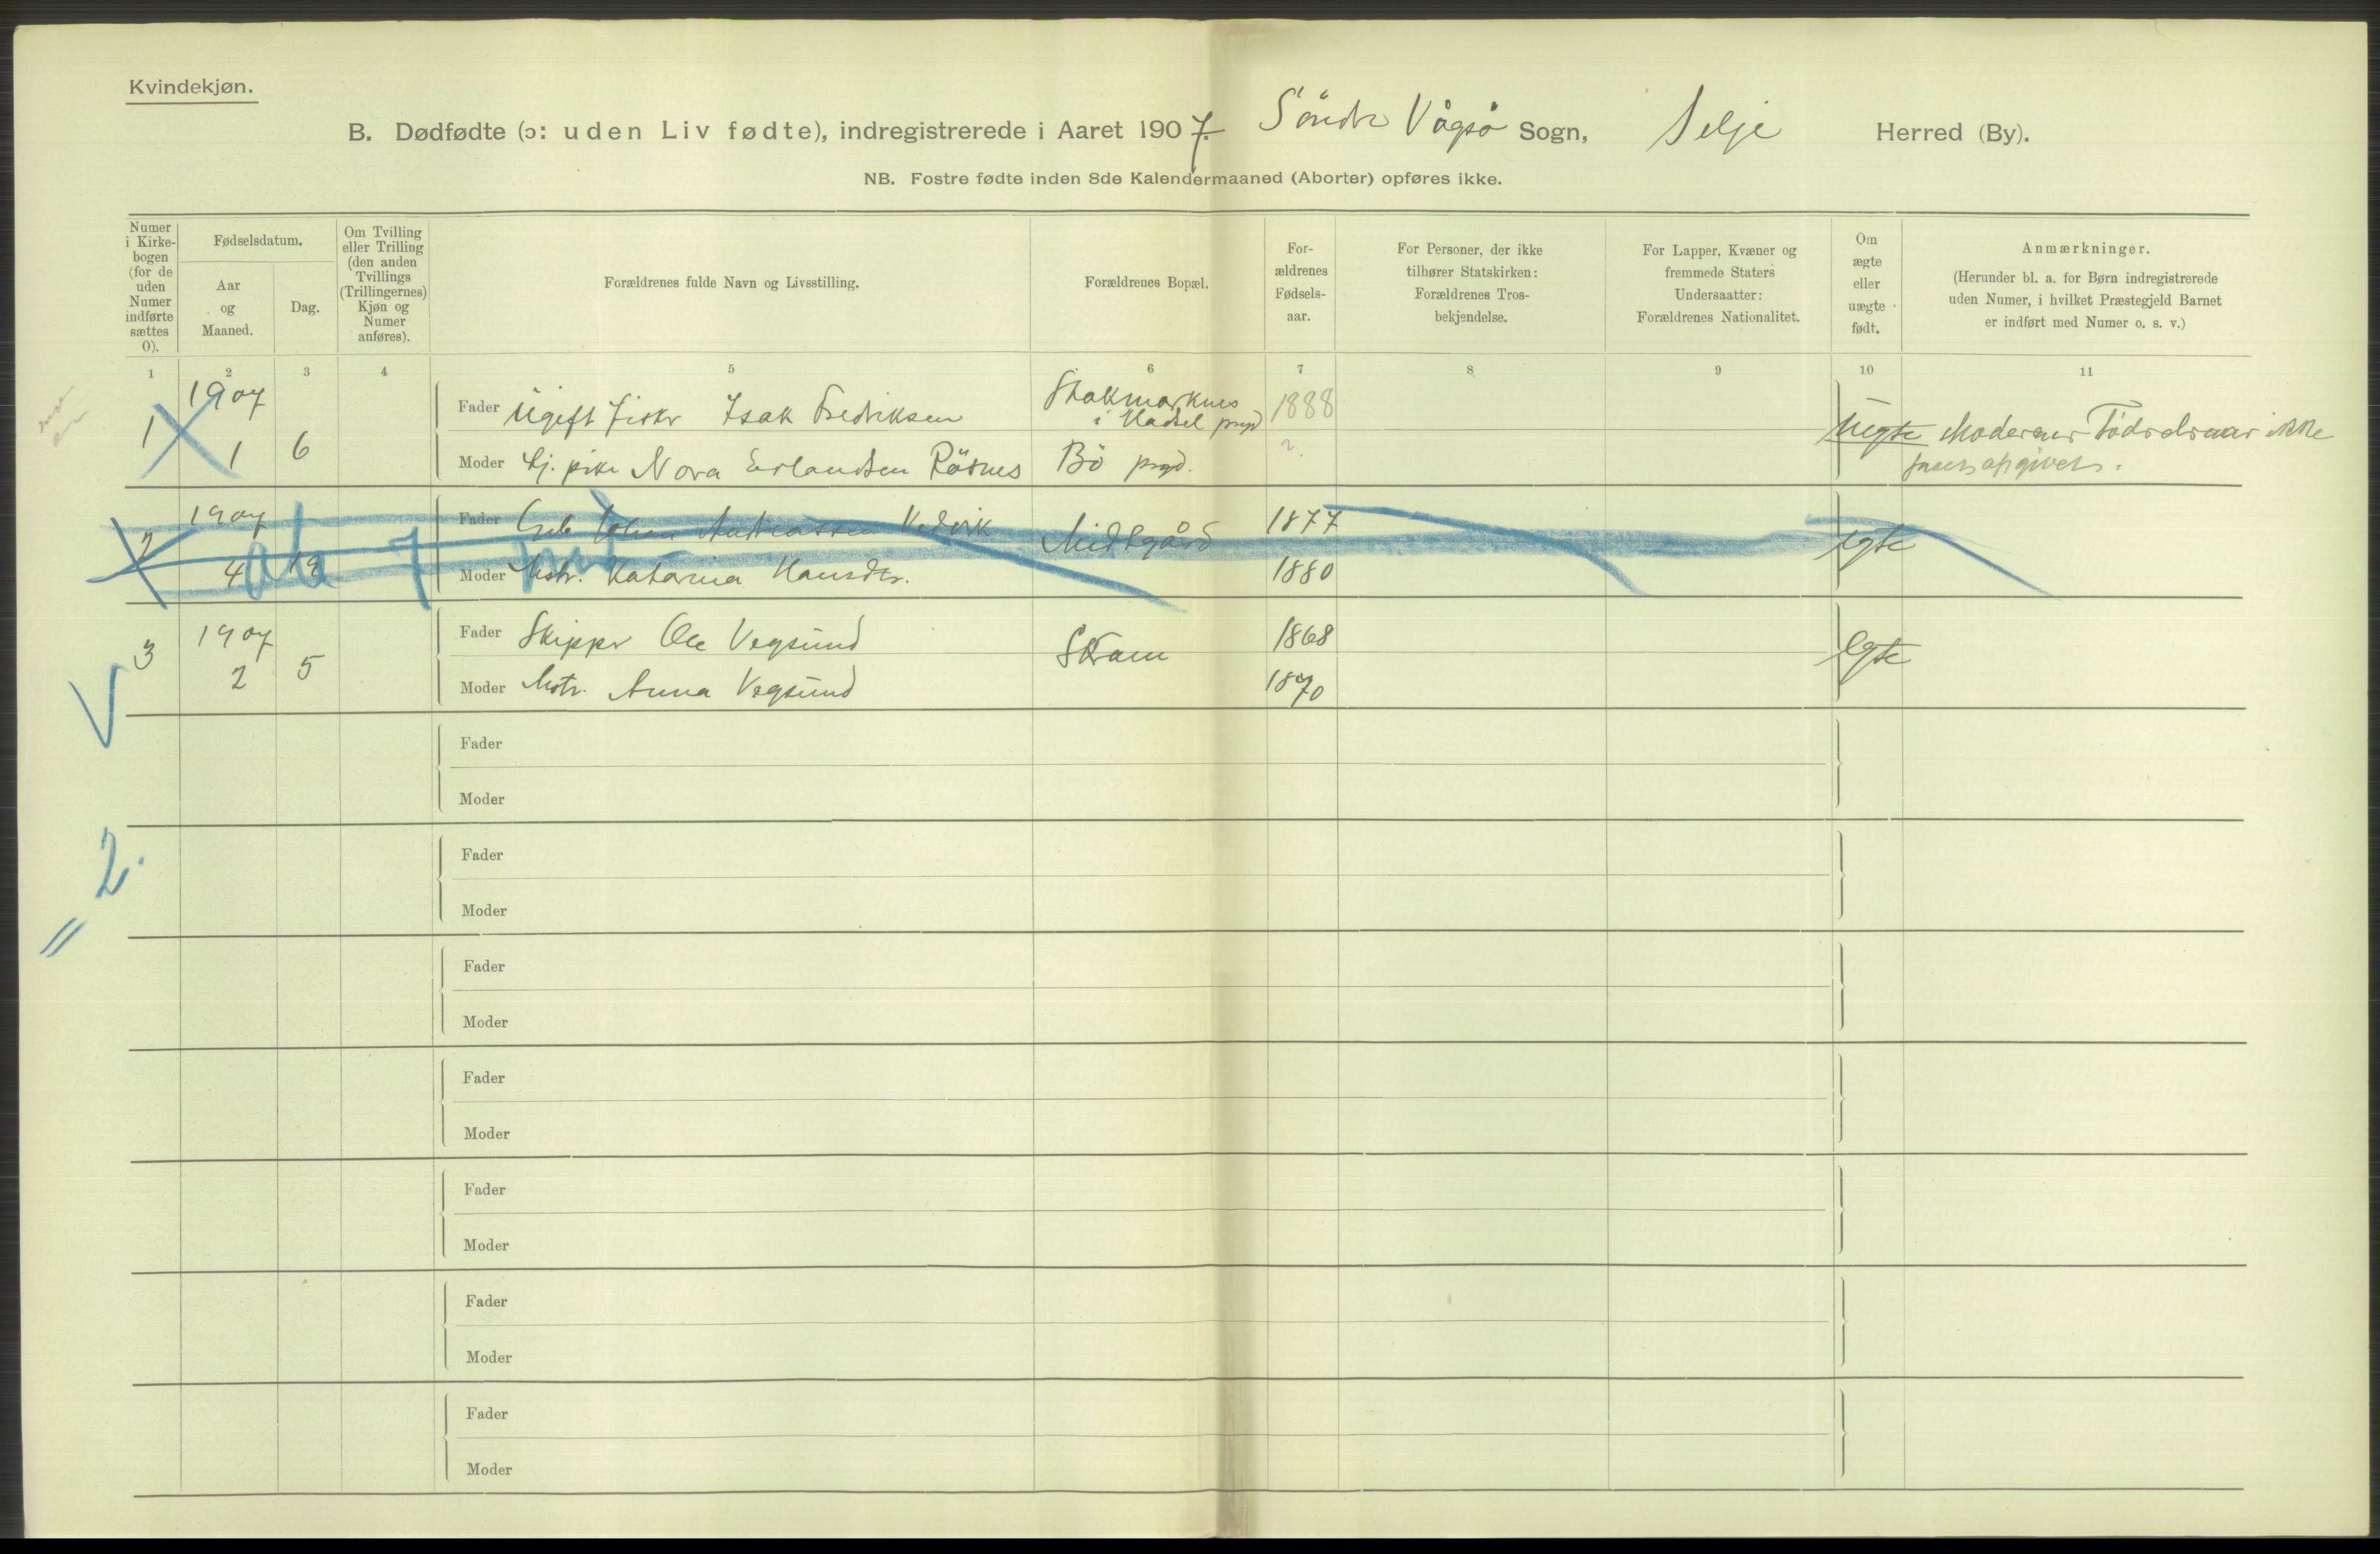 Kvindekjøn.
B. Dødfødte (ɔ: uden Liv fødte), indregistrerede i Aaret 1907. Söndre Vågsö Sogn, Selje Herred (By).
NB. Fostre fødte inden 8de Kalendermaaned (Aborter) opføres ikke.
Numer i Kirke-bogen (for de uden Numer indførte sættes 0).
Fødselsdatum.
Aar og Maaned.
Dag.
Om Tvilling eller Trilling (den anden Tvillings (Trillingernes) Kjøn og Numer anføres).
Forældrenes fulde Navn og Livsstilling.
Forældrenes Bopæl.
For-ældrenes Fødsels-aar.
For Personer, der ikke tilhører Statskirken: Forældrenes Tros-bekjendelse.
For Lapper, Kvæner og fremmede Staters Undersaatter: Forældrenes Nationalitet.
Om ægte eller uægte født.
Anmærkninger.
(Herunder bl. a. for Børn indregistrerede uden Numer, i hvilket Præstegjeld Barnet er indført med Numer o. s. v.)
1 2 3 4 5 6 7 8 9 10 11
1 1907 1 6
Fader Ugift fisker Isak Fredriksen
Stokmarknes i Hadsel prgd 1888
Moder tj. pike Nora Erlandsen Rösnes Bö prgd. ?
Uegte Moderens Födselsaar ikke
opgivet.
2 1907 4 19
Fader Johan Andreassen Vedvik Midtgård 1877
Moder Hstr. Katarina Hansdtr. 1880
egte
3 1907 2 5
Fader Skipper Ole Vegsund Skram 1868
Moder Hstr. Anna Vegsund 1870
Egte
Fader
Moder
2.
Fader
Moder
Fader
Moder
Fader
Moder
Fader
Moder
Fader
Moder
Fader
Moder